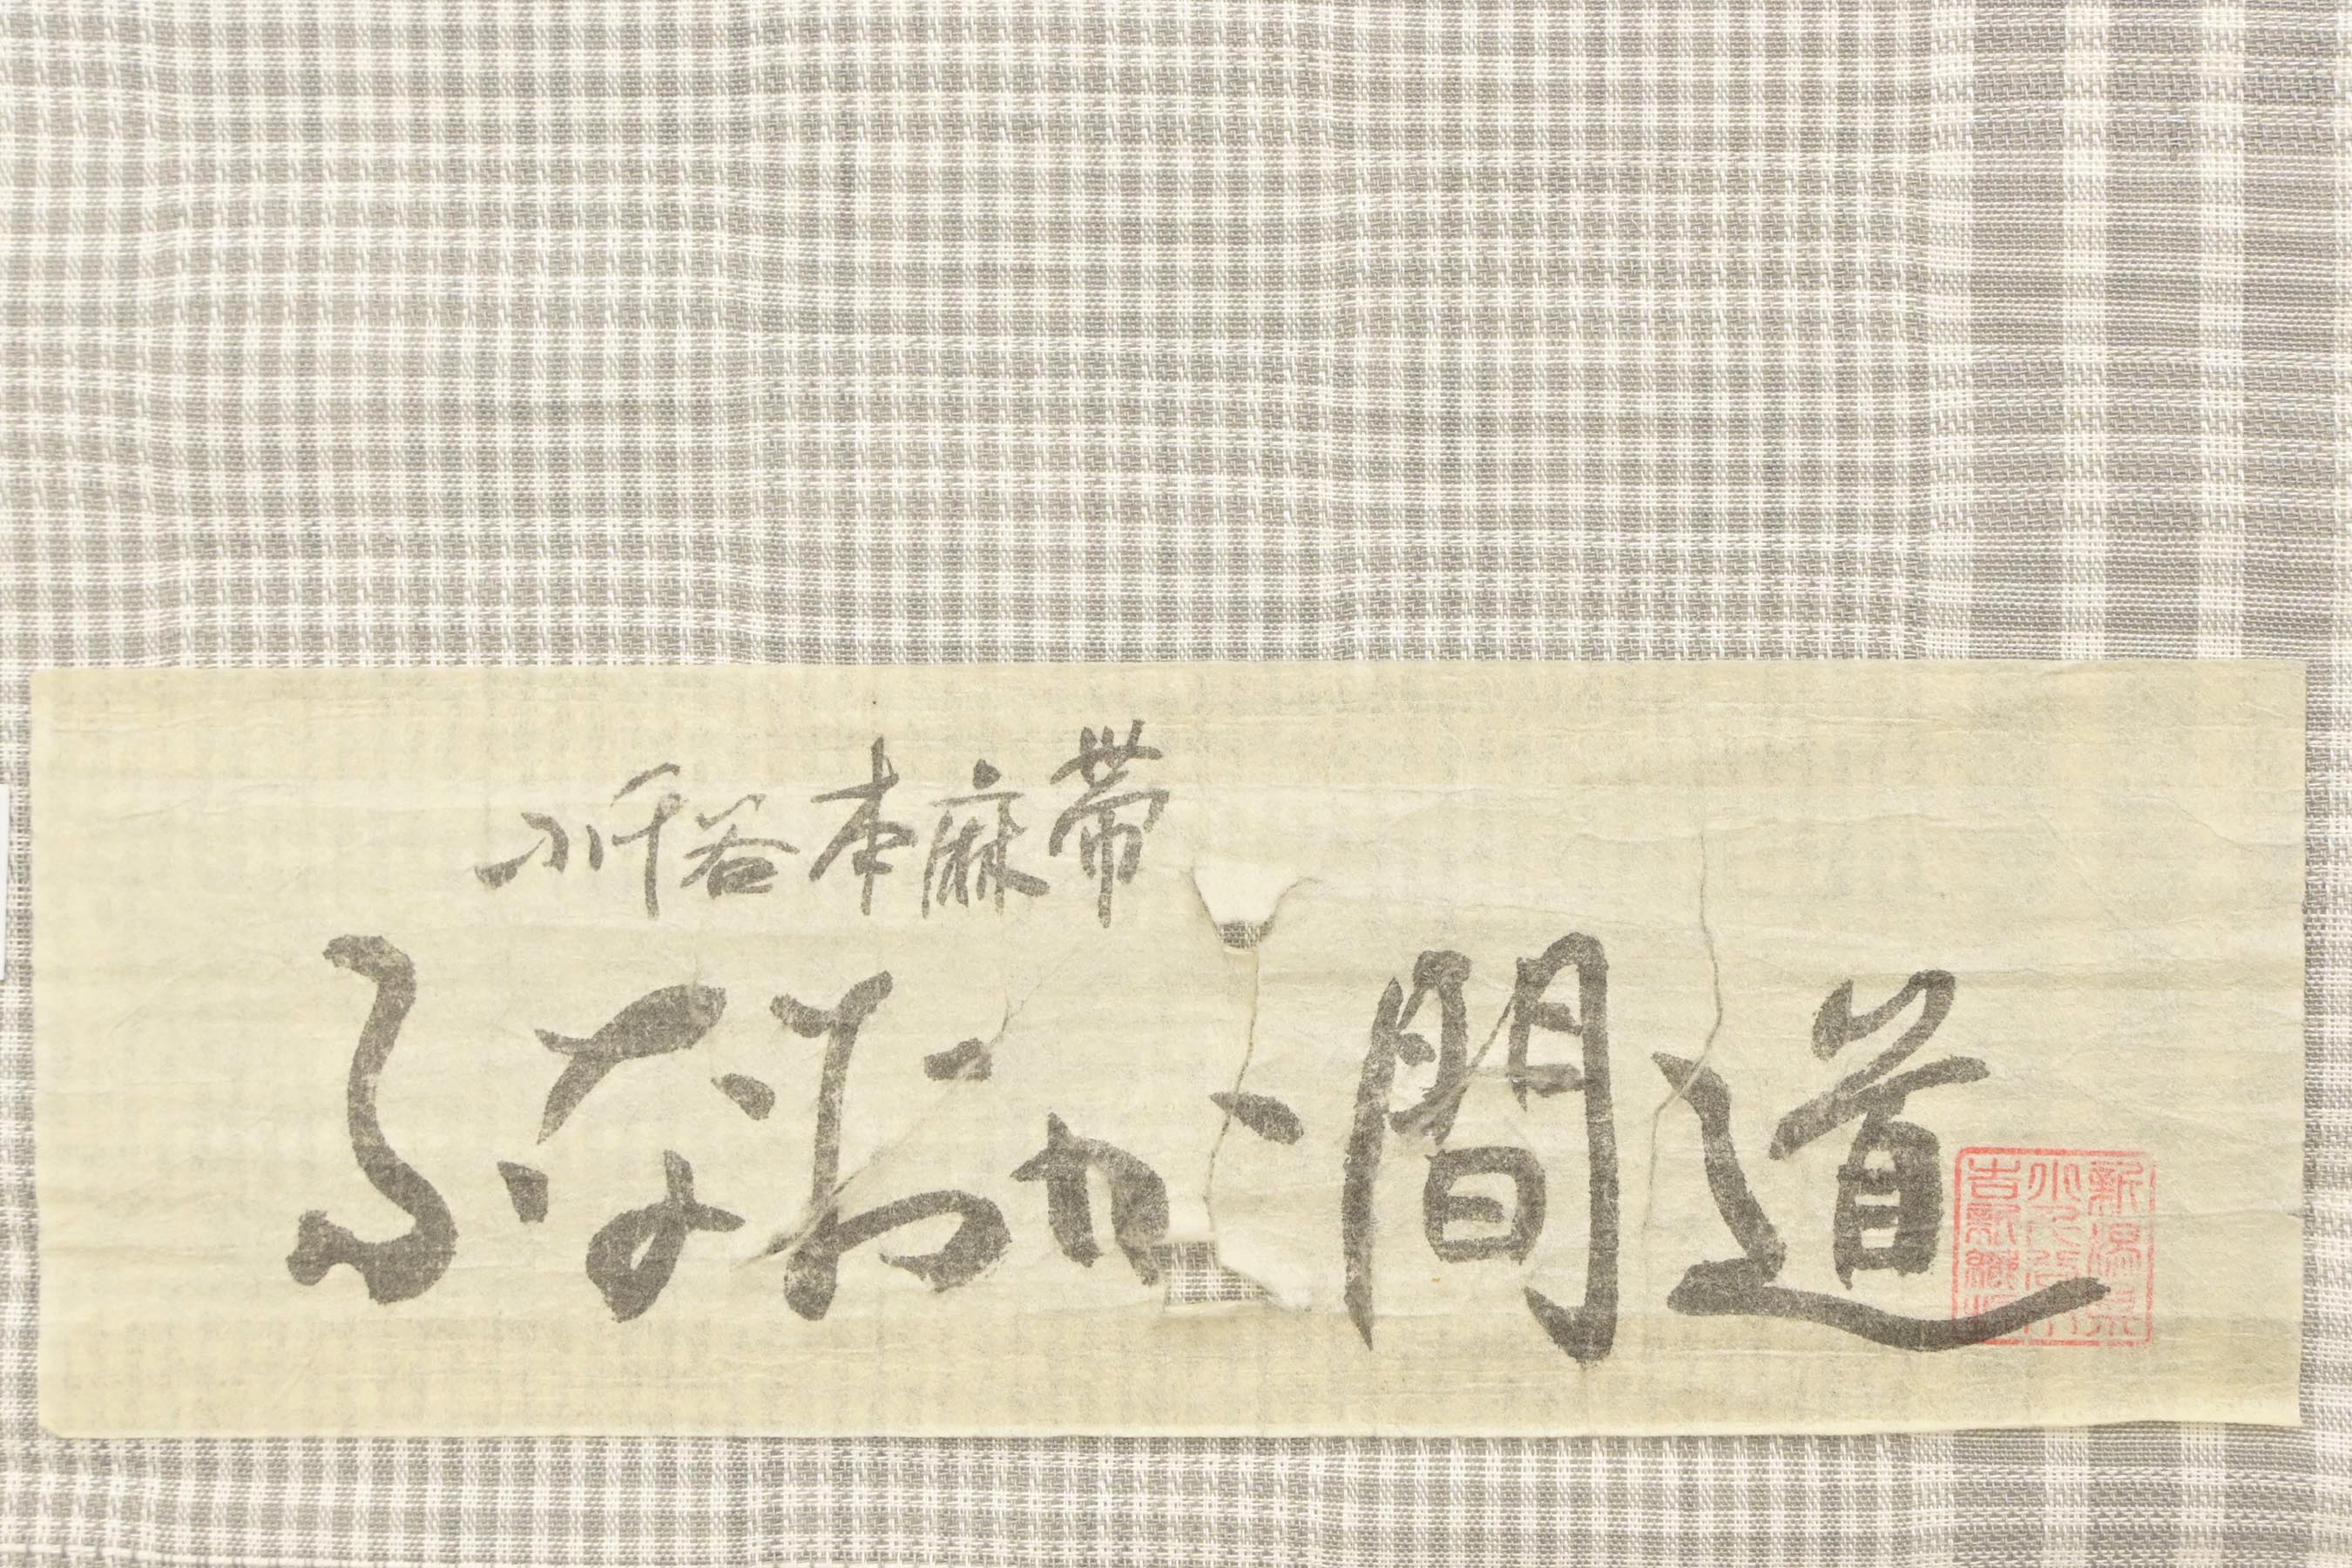 小千谷本麻帯
ふなおか間道
新潟県
小千谷市
吉新織物